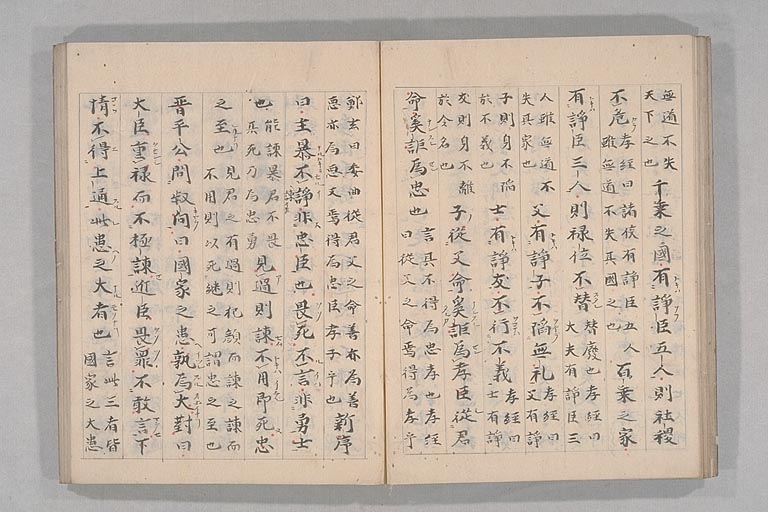 無道不失
天下之也
千乗之國有諍臣五人則社稷
不危
孝経曰諸侯有諍臣五人
雖無道不失其國之也
百乗之家
有諍臣三人則禄位不替
替廢也孝経曰
大夫有諍臣三
人雖無道不
失其家也
父有諍子不陥無礼
孝経曰
父有諍
子則身不陥
於不義也
士有諍友不行不義
孝経曰
士有諍
友則身不離
於令名也
子従父命奚詎為孝臣従君
命奚詎為忠也
言其不得為忠孝也孝経
曰従父之命焉得為孝乎
鄭玄曰委曲従君父之命善亦為善
悪亦為悪又焉得為忠臣孝子乎也
新序
曰主暴不諍非忠臣也畏死不言非勇士
也
能諫暴君不畏
其死乃為忠勇
見過則諫不用即死忠
之至也
見君之有過則犯顔而諫之諫而
不用則以死継之可謂忠之至也
晋平公問叔向曰國家之患孰為大對曰
大臣重禄而不極諫近臣畏罪不敢言下
情不得上通此患之大者也
言此三者皆
國家之大患